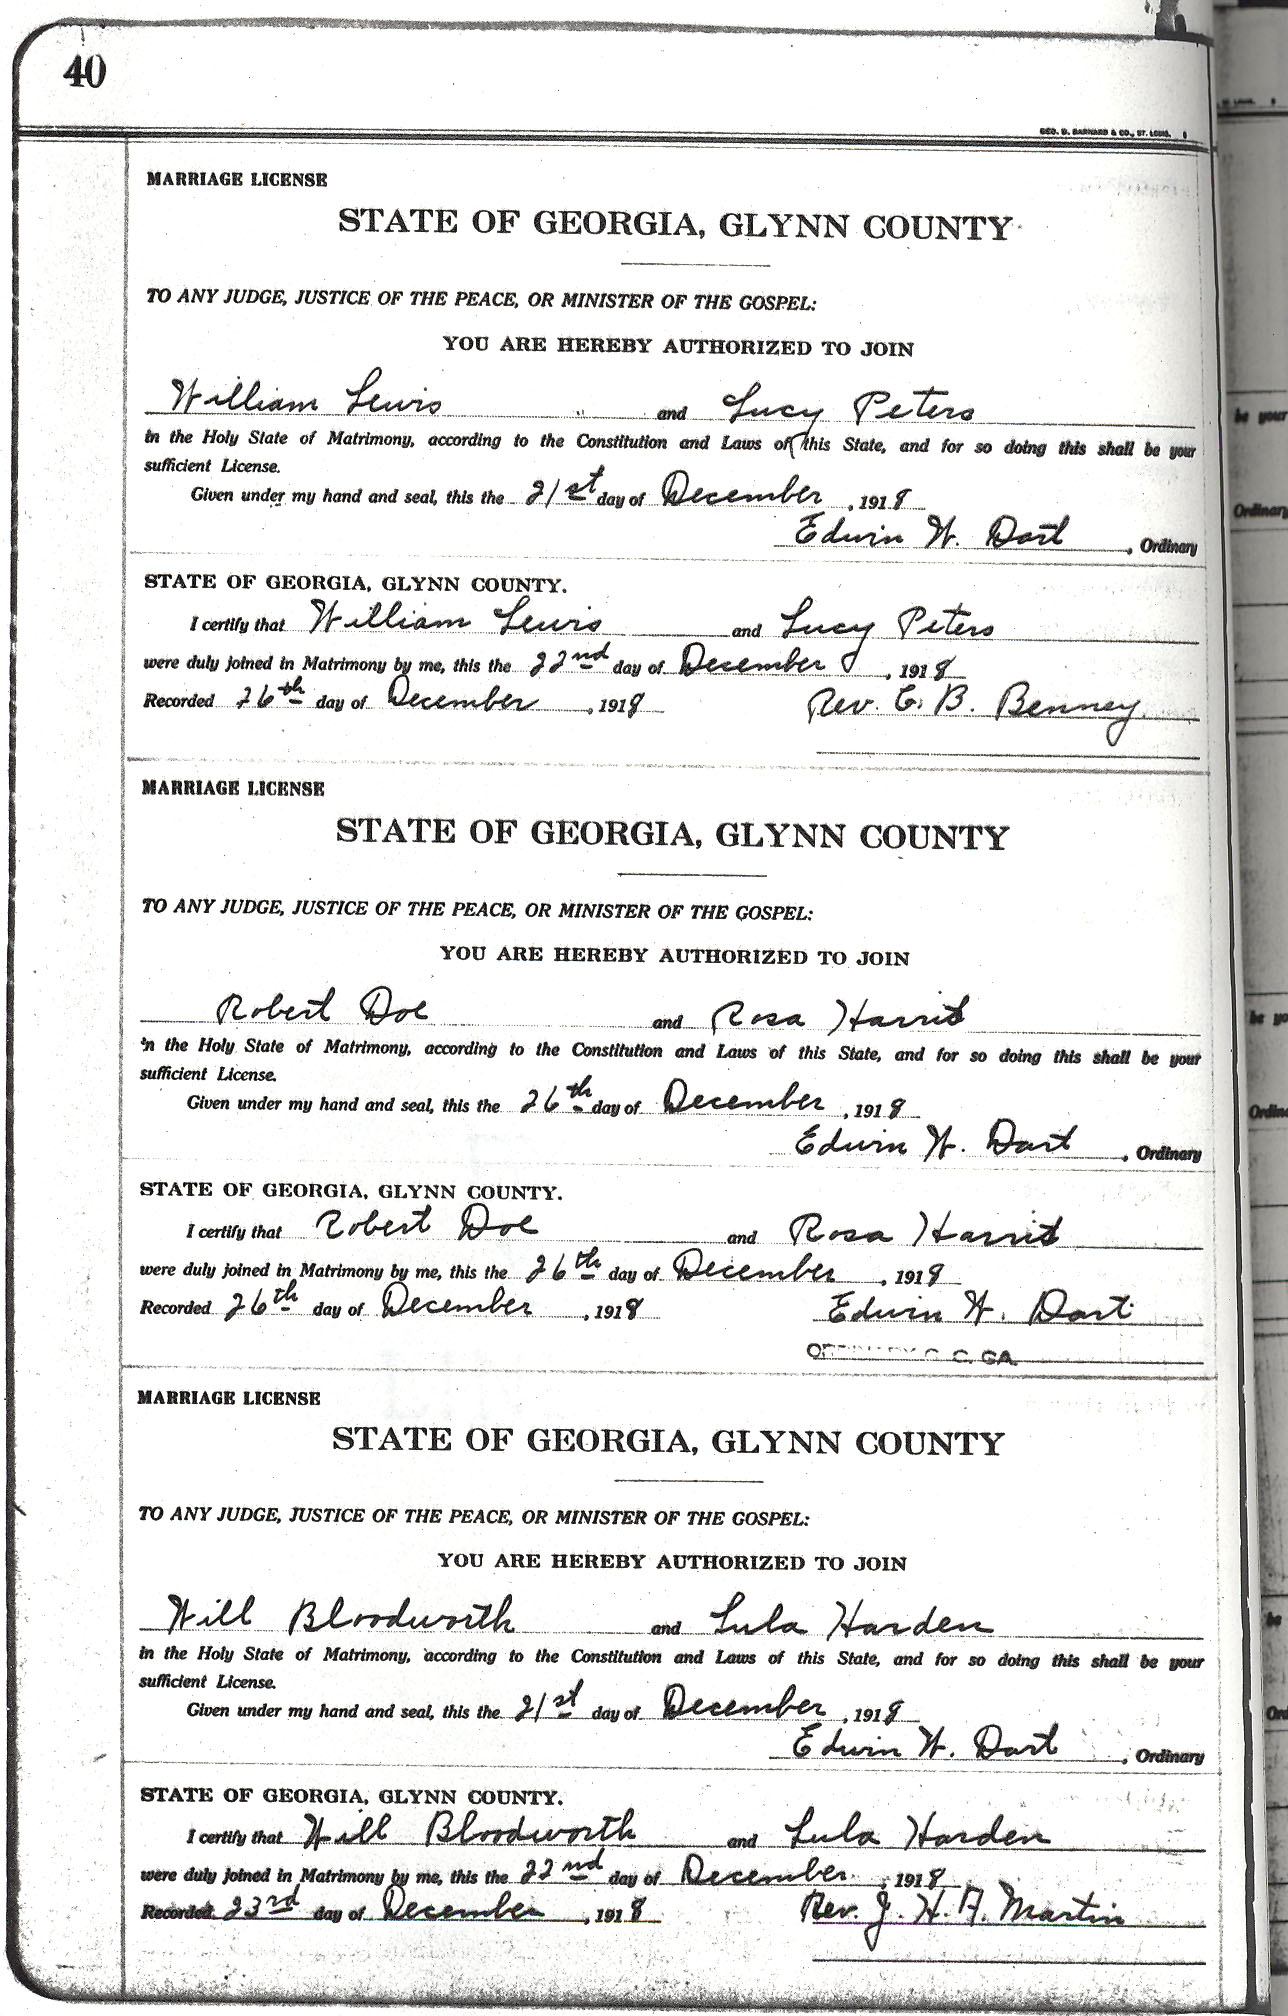 40
GEO. D. BARNARD & CO., ST. LOUIS.
MARRIAGE LICENSE
STATE OF GEORGIA, GLYNN COUNTY
TO ANY JUDGE, JUSTICE OF THE PEACE, OR MINISTER OF THE GOSPEL:
YOU ARE HEREBY AUTHORIZED TO JOIN
William Lewis and Lucy Peters
in the Holy State of Matrimony, according to the Constitution and Laws of this State, and for so doing this shall be your
sufficient License.
Given under my hand and seal, this the 21st day of December, 1918
Edwin W. Dart, Ordinary
STATE OF GEORGIA, GLYNN COUNTY.
I certify that William Lewis and Lucy Peters
were duly joined in Matrimony by me, this the 22nd day of December, 1918
Recorded 26th day of December, 1918 Rev. C. B. Benney
MARRIAGE LICENSE
STATE OF GEORGIA, GLYNN COUNTY
TO ANY JUDGE, JUSTICE OF THE PEACE, OR MINISTER OF THE GOSPEL:
YOU ARE HEREBY AUTHORIZED TO JOIN
Robert Doe and Rosa Harris
in the Holy State of Matrimony, according to the Constitution and Laws of this State, and for so doing this shall be your
sufficient License.
Given under my hand and seal, this the 26th day of December, 1918
Edwin W. Dart, Ordinary
STATE OF GEORGIA, GLYNN COUNTY.
I certify that Robert Doe and Rosa Harris
were duly joined in Matrimony by me, this the 26th day of December, 1918
Recorded 26th day of December, 1918 Edwin W. Dart
ORDINARY G. C. GA.
MARRIAGE LICENSE
STATE OF GEORGIA, GLYNN COUNTY
TO ANY JUDGE, JUSTICE OF THE PEACE, OR MINISTER OF THE GOSPEL:
YOU ARE HEREBY AUTHORIZED TO JOIN
Will Bloodworth and Lula Harden
in the Holy State of Matrimony, according to the Constitution and Laws of this State, and for so doing this shall be your
sufficient License.
Given under my hand and seal, this the 21st day of December, 1918
Edwin W. Dart, Ordinary
STATE OF GEORGIA, GLYNN COUNTY.
I certify that Will Bloodworth and Lula Harden
were duly joined in Matrimony by me, this the 22nd day of December, 1918
Recorded 23rd day of December, 1918 Rev. J. H. A. Martin